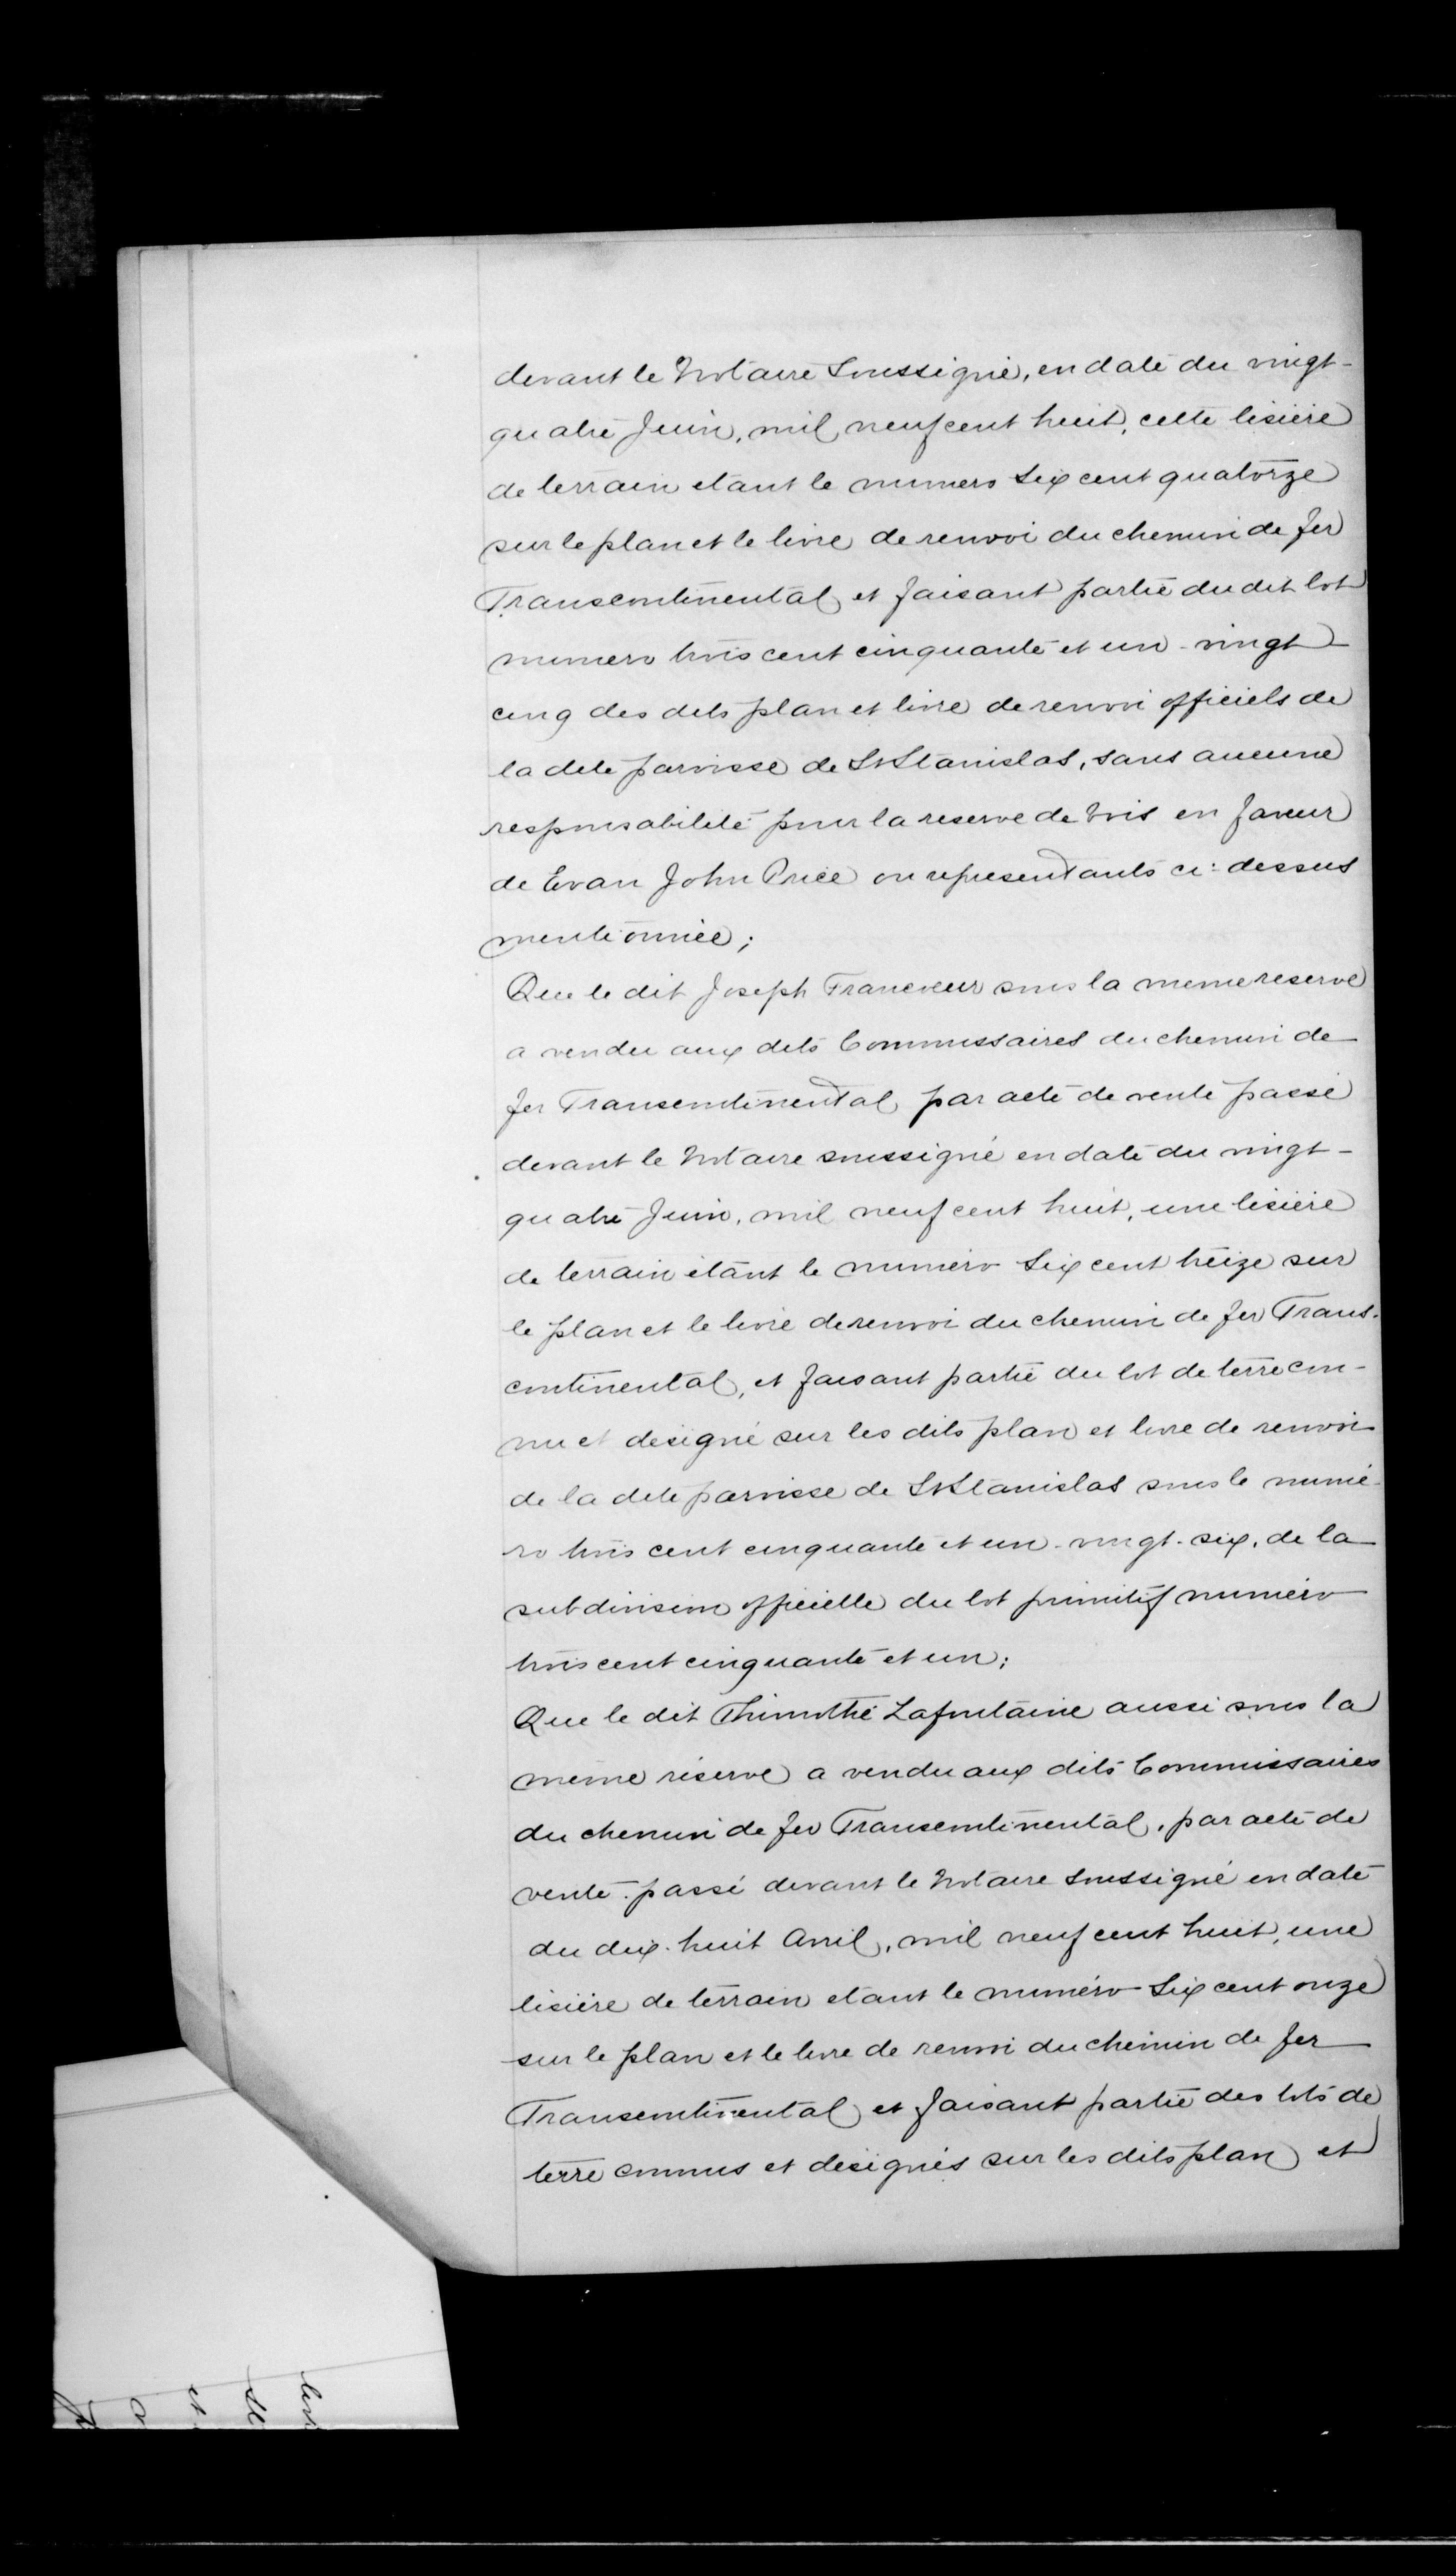 devant le Notaire Soussigné, en date du vingt-
quatre Juin, mil neuf cent huit, cette lisière
de terrain etant le numero Six cent quatorze
sur le plan et le livre de renvoi du chemin de fer
Transcontinental et faisant partie du dit lot
numero trois cent cinquante et un - vingt
cinq des dits plan et livre de renvoi officiels de
la dite paroisse de St Stanislas, sans aucune
responsabilité pour la reserve de bois en faveur
de Evan John Price ou representants ci-dessus
mentionnée;
Que le dit Joseph Francoeur sous la meme reserve
a vendu aux dits Commissaires du chemin de
fer Transcontinental par acte de vente passé
devant le Notaire soussigné en date du vingt-
quatre Juin, mil neuf cent huit, une lisière
de terrain étant le numéro Six cent treize sur
le plan et le livre de renvoi du chemin de fer Trans-
continental, et faisant partie du lot de terre con-
nu et désigné sur les dits plan et livre de renvoi
de la dite paroisse de St Stanislas sous le numé-
ro trois cent cinquante et un - vingt-six, de la
subdivision officielle du lot primitif numéro
trois cent cinquante et un;
Que le dit Thimothé Lafontaine aussi sous la
même réserve a vendu aux dits Commissaires
du chemin de fer Transcontinental, par acte de
vente passé devant le Notaire Soussigné en date
du dix-huit Avril, mil neuf cent huit, une
lisière de terrain etant le numéro Six cent onze
sur le plan et le livre de renvoi du chemin de fer
Transcontinental et faisant partie des lots de
terre connus et désignés sur les dits plan et